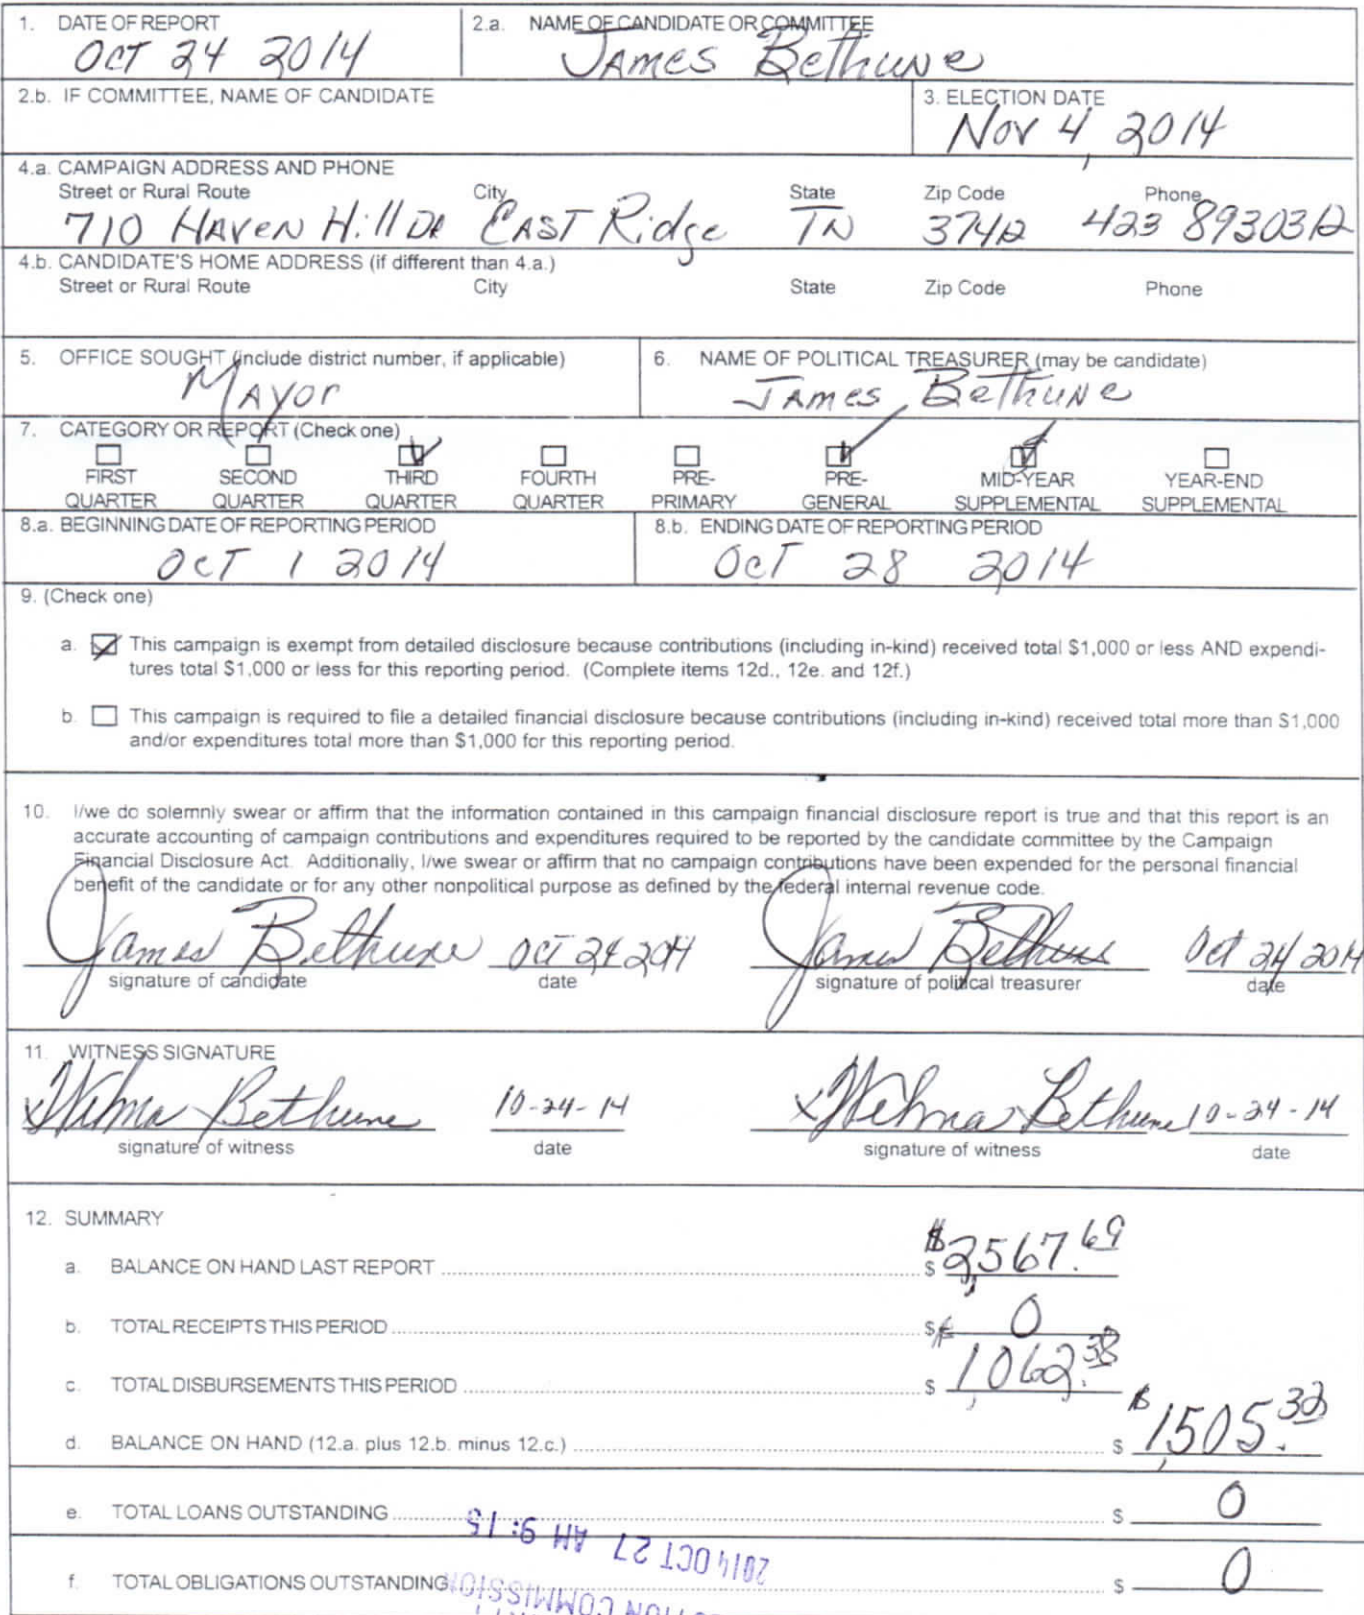 1. DATE OF REPORT
OCT 24 2014
2.a. NAME OF CANDIDATE OR COMMITTEE
JAMES Bethune
2.b. IF COMMITTEE, NAME OF CANDIDATE
3. ELECTION DATE
Nov 4, 2014
4.a. CAMPAIGN ADDRESS AND PHONE
Street or Rural Route City State Zip Code Phone
710 HAVEN Hill DR EAST Ridge TN 37412 423 8930312
4.b. CANDIDATE'S HOME ADDRESS (if different than 4.a.)
Street or Rural Route City State Zip Code Phone
5. OFFICE SOUGHT (include district number, if applicable)
MAYOR
6. NAME OF POLITICAL TREASURER (may be candidate)
JAMES Bethune
7. CATEGORY OR REPORT (Check one)
FIRST QUARTER
SECOND QUARTER
THIRD QUARTER
FOURTH QUARTER
PRE-PRIMARY
PRE-GENERAL
MID-YEAR SUPPLEMENTAL
YEAR-END SUPPLEMENTAL
8.a. BEGINNING DATE OF REPORTING PERIOD
OCT 1 2014
8.b. ENDING DATE OF REPORTING PERIOD
OCT 28 2014
9. (Check one)
a. This campaign is exempt from detailed disclosure because contributions (including in-kind) received total $1,000 or less AND expendi-
tures total $1,000 or less for this reporting period. (Complete items 12d., 12e. and 12f.)
b. This campaign is required to file a detailed financial disclosure because contributions (including in-kind) received total more than $1,000
and/or expenditures total more than $1,000 for this reporting period.
10. I/we do solemnly swear or affirm that the information contained in this campaign financial disclosure report is true and that this report is an
accurate accounting of campaign contributions and expenditures required to be reported by the candidate committee by the Campaign
Financial Disclosure Act. Additionally, I/we swear or affirm that no campaign contributions have been expended for the personal financial
benefit of the candidate or for any other nonpolitical purpose as defined by the federal internal revenue code.
James Bethune OCT 24 2014 James Bethune Oct 24 2014
signature of candidate date signature of political treasurer date
11. WITNESS SIGNATURE
x Wilma Bethune 10-24-14 x Wilma Bethune 10-24-14
signature of witness date signature of witness date
12. SUMMARY
a. BALANCE ON HAND LAST REPORT $ $2,567.69
b. TOTAL RECEIPTS THIS PERIOD $ 0
c. TOTAL DISBURSEMENTS THIS PERIOD $ 1,062.38
d. BALANCE ON HAND (12.a. plus 12.b. minus 12.c.) $ $1,505.32
e. TOTAL LOANS OUTSTANDING $ 0
2014 OCT 27 AM 9:15
f. TOTAL OBLIGATIONS OUTSTANDING $ 0
COMMISSION